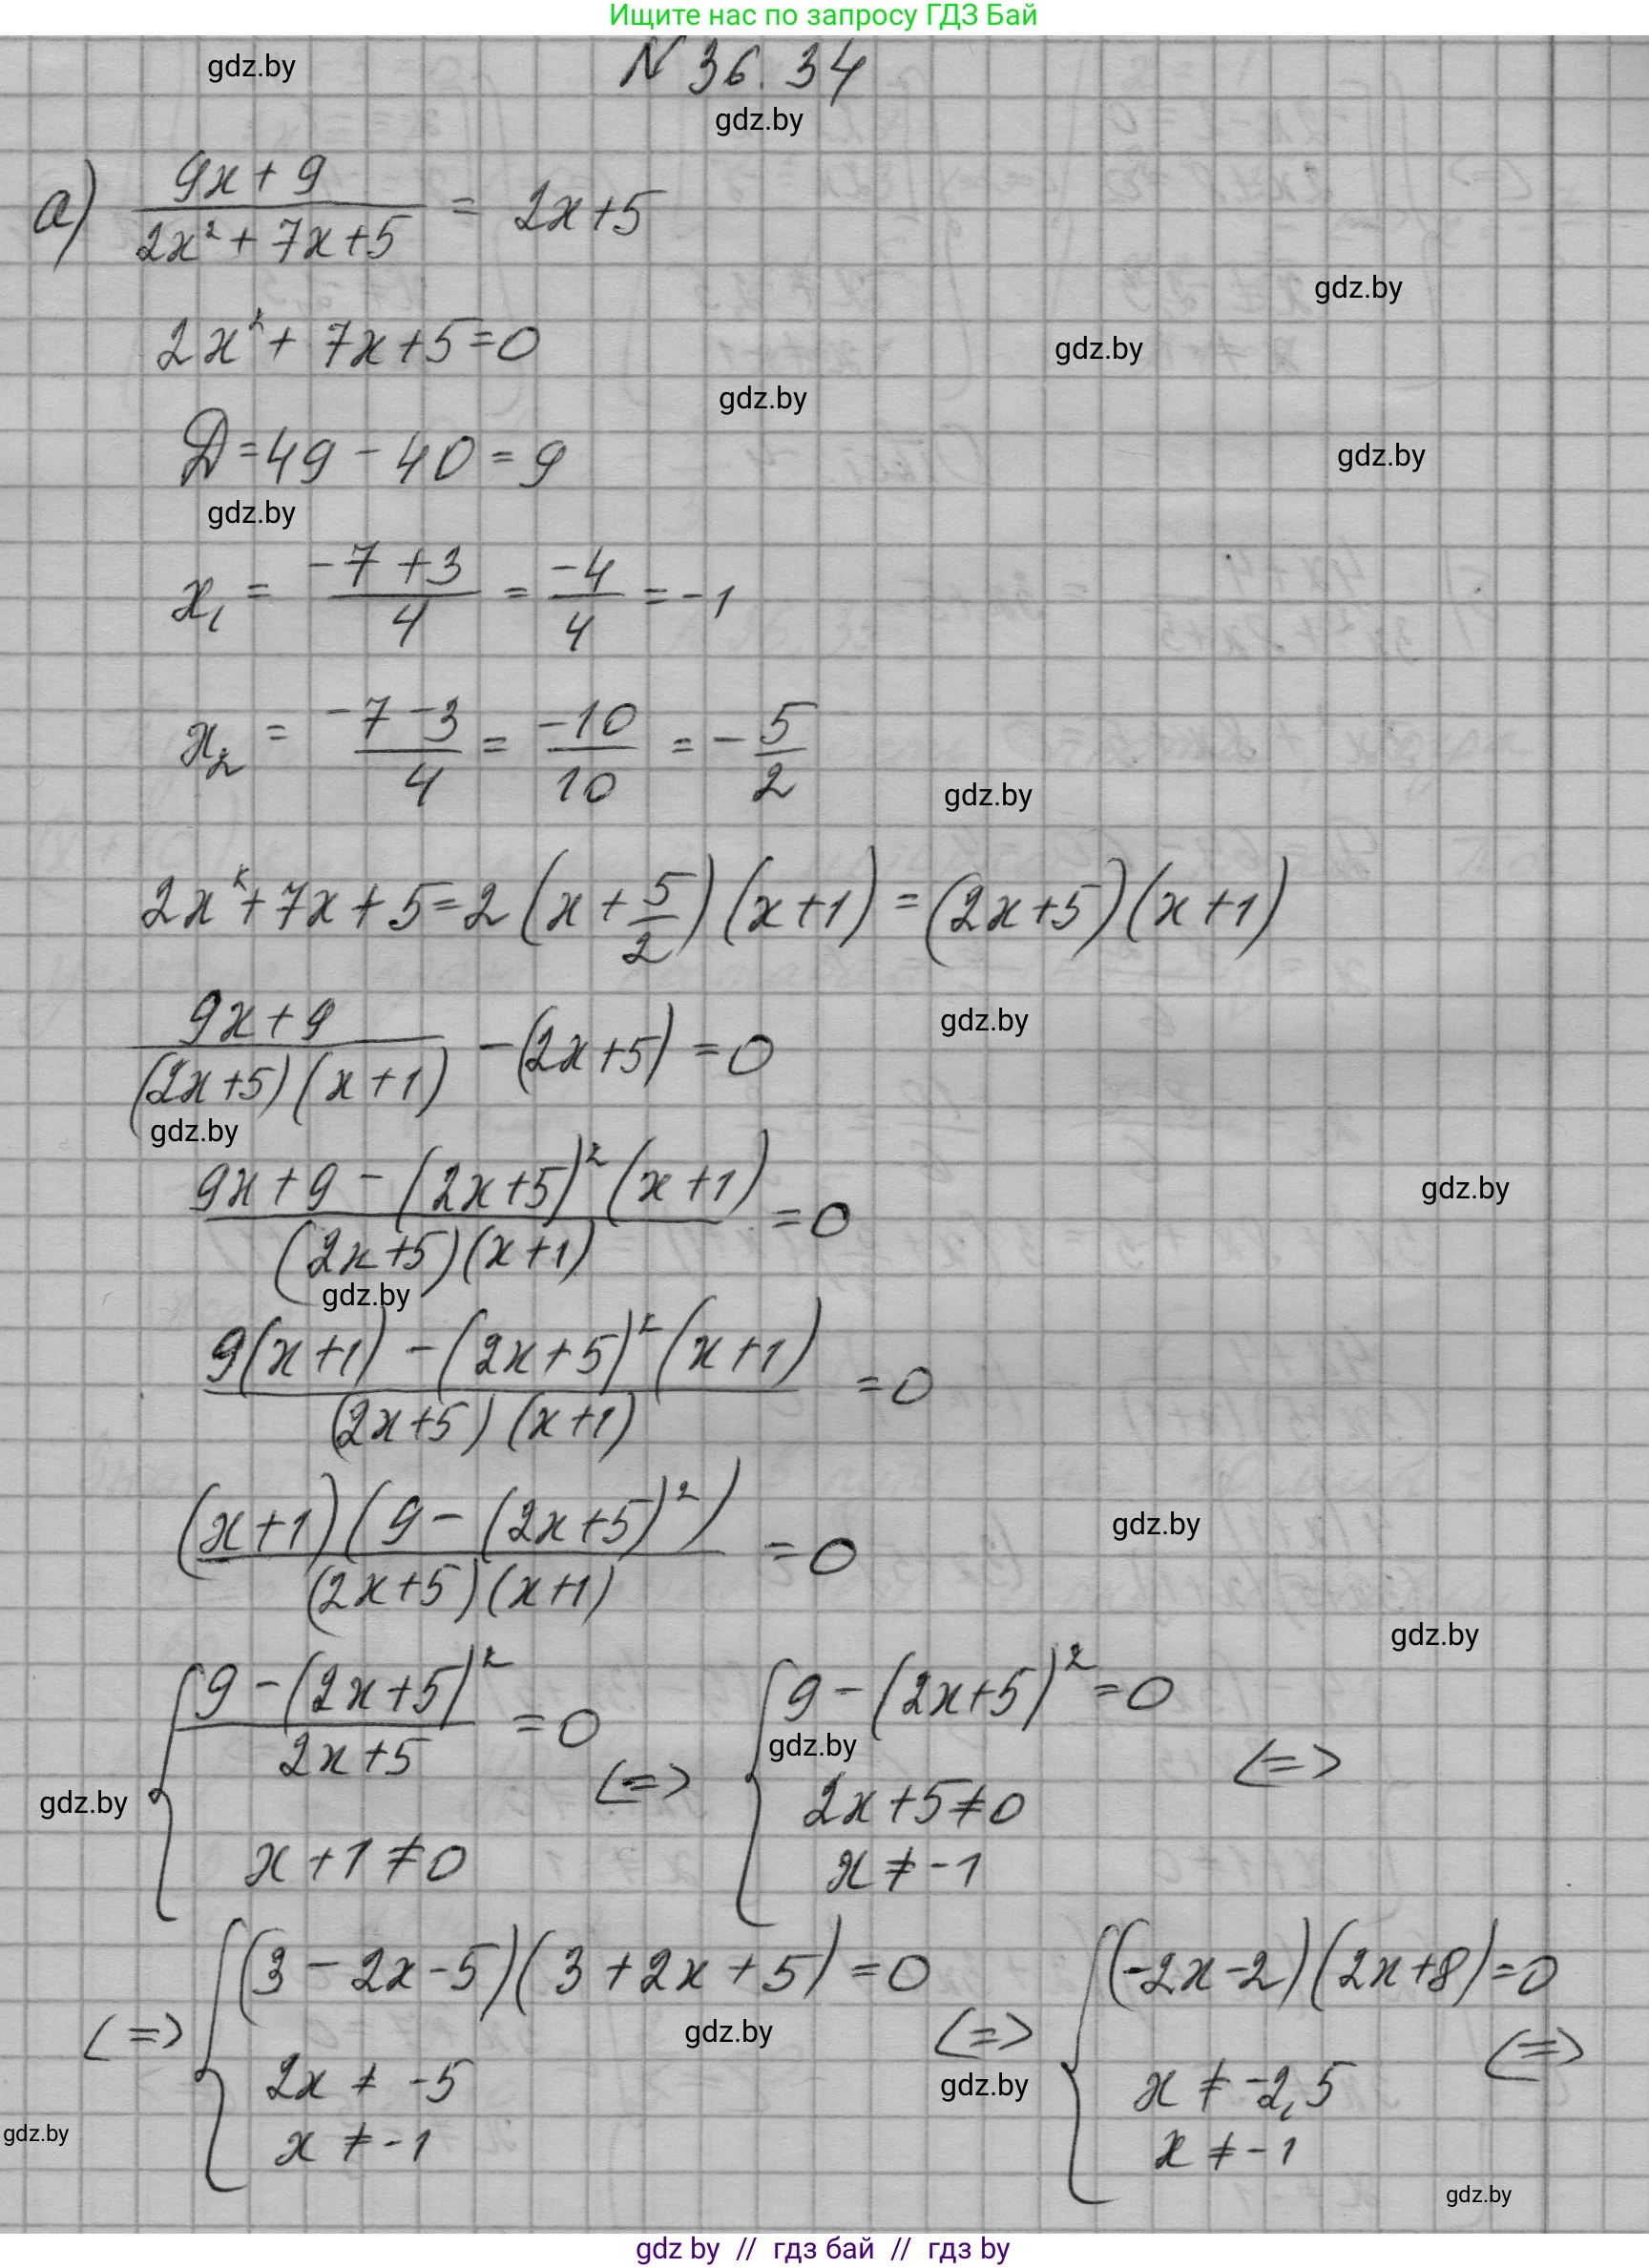 Ищите нас по запросу ГДЗ Бай
N 36.34
gdz.by
gdz.by
а) (9x + 9)/(2x² + 7x + 5) = 2x + 5
gdz.by
2x² + 7x + 5 = 0
gdz.by
gdz.by
Д = 49 - 40 = 9
gdz.by
gdz.by
x₁ = (-7 + 3)/4 = -4/4 = -1
x₂ = (-7 - 3)/4 = -10/10 = -5/2
gdz.by
2x² + 7x + 5 = 2(x + 5/2)(x + 1) = (2x + 5)(x + 1)
(9x + 9)/((2x + 5)(x + 1)) - (2x + 5) = 0
gdz.by
gdz.by
(9x + 9 - (2x + 5)²(x + 1))/((2x + 5)(x + 1)) = 0
gdz.by
gdz.by
(9(x + 1) - (2x + 5)²(x + 1))/((2x + 5)(x + 1)) = 0
((x + 1)(9 - (2x + 5)²))/((2x + 5)(x + 1)) = 0
gdz.by
gdz.by
{ (9 - (2x + 5)²)/(2x + 5) = 0
x + 1 ≠ 0
<=>
{ 9 - (2x + 5)² = 0
gdz.by
2x + 5 ≠ 0
x ≠ -1
<=>
gdz.by
<=>
{ (3 - 2x - 5)(3 + 2x + 5) = 0
2x ≠ -5
x ≠ -1
gdz.by
<=>
gdz.by
{ (-2x - 2)(2x + 8) = 0
x ≠ -2,5
x ≠ -1
<=>
gdz.by
gdz.by
gdz by // гдз бай // гдз by